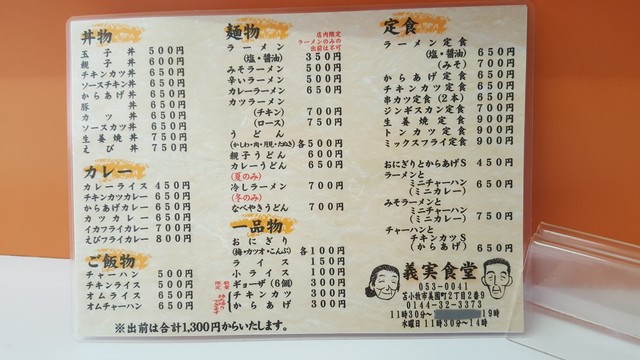 丼物
玉子丼 500円
親子丼 600円
チキンカツ丼 650円
ソースチキン丼 650円
からあげ丼 650円
豚丼 650円
カツ丼 650円
ソースカツ丼 650円
生姜焼丼 750円
えび丼 750円
カレー
カレーライス 450円
チキンカツカレー 650円
からあげカレー 650円
カツカレー 650円
イカフライカレー 700円
えびフライカレー 800円
ご飯物
チャーハン 500円
チキンライス 500円
オムライス 650円
オムチャーハン 650円
麺物
店内限定
ラーメンのみの
出前は不可
ラーメン
(塩・醤油) 350円
みそラーメン 500円
辛いラーメン 500円
カレーラーメン 650円
カツラーメン
(チキン) 700円
(ロース) 750円
うどん
(かしわ・肉・月見・たぬき) 各500円
親子うどん 600円
カレーうどん 650円
(夏のみ)
冷しラーメン 700円
(冬のみ)
なべやきうどん 700円
一品物
おにぎり
(梅・カツオ・こんぶ) 各100円
ライス 150円
小ライス 100円
ギョーザ(6個) 300円
チキンカツ 300円
からあげ 300円
定食
ラーメン定食
(塩・醤油) 650円
(みそ) 700円
からあげ定食 650円
チキンカツ定食 650円
串カツ定食(2本) 650円
ジンギスカン定食 700円
生姜焼定食 900円
トンカツ定食 900円
ミックスフライ定食 900円
おにぎりとからあげS 450円
ラーメンと
ミニチャーハン
(ミニカレー) 650円
みそラーメンと
ミニチャーハン
(ミニカレー) 750円
チャーハンと
チキンカツS
(からあげ) 650円
義実食堂
053-0041
苫小牧市美園町2丁目2番9
0144-32-3373
11時30分~ 19時
水曜日 11時30分~14時
※出前は合計1,300円からいたします。